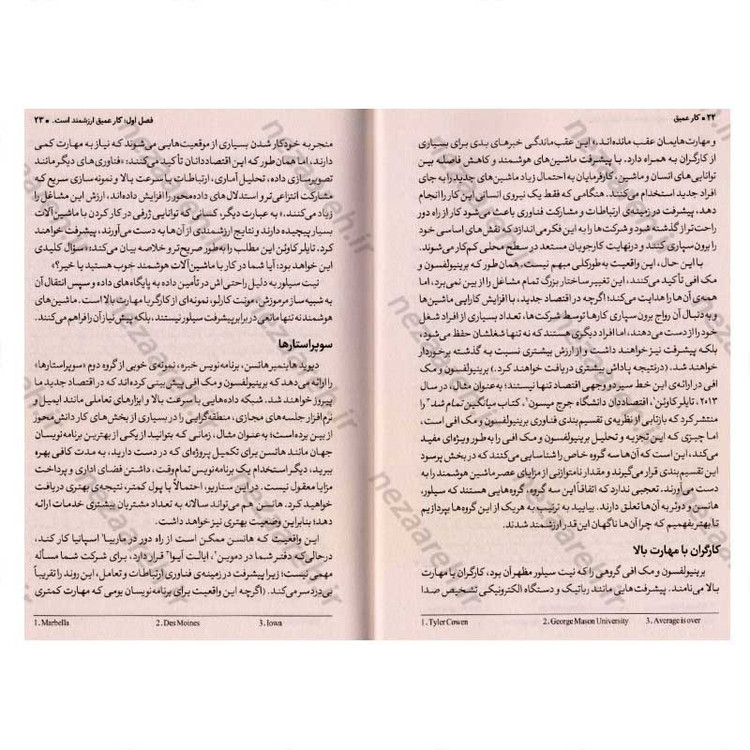 ۲۲ ● کار عمیق
و مهارت‌هایمان عقب مانده‌اند.» این عقب‌ماندگی خبرهای بدی برای بسیاری
از کارگران به همراه دارد. با پیشرفت ماشین‌های هوشمند و کاهش فاصله بین
توانایی‌های انسان و ماشین، کارفرمایان به احتمال زیاد ماشین‌های جدید را به جای
افراد جدید استخدام می‌کنند. هنگامی که فقط یک نیروی انسانی این کار را انجام
دهد، پیشرفت در زمینه‌ی ارتباطات و مشارکت فناوری باعث می‌شود کار از راه دور
راحت‌تر از گذشته شود و شرکت‌ها را به این فکر می‌اندازد که نقش‌های اساسی خود
را برون سپاری کنند و درنهایت کارجویان مستعد در سطح محلی کم‌کار می‌شوند.
با این حال، این واقعیت به‌طورکلی مبهم نیست. همان طور که برینولفسون و
مک افی تأکید می‌کنند، این تغییر ساختار بزرگ تمام مشاغل را از بین نمی‌برد، اما
همه‌ی آن‌ها را هدایت می‌کند؛ اگرچه در اقتصاد جدید، با افزایش کارایی ماشین‌ها
و به‌دنبال آن رواج برون سپاری کارها توسط شرکت‌ها، تعداد بسیاری از افراد شغل
خود را از دست می‌دهند، اما افراد دیگری هستند که نه تنها شغلشان حفظ می‌شود،
بلکه پیشرفت نیز خواهند داشت و از ارزش بیشتری نسبت به گذشته برخوردار
خواهند شد. (درنتیجه پاداش بیشتری دریافت خواهند کرد.) برینولفسون و مک
افی در ارائه‌ی این خط سیر دو وجهی اقتصاد تنها نیستند؛ به‌عنوان مثال، در سال
۲۰۱۳، تایلر کاوئن¹، اقتصاددان دانشگاه جرج میسون²، کتاب میانگین تمام شد³ را
منتشر کرد که بازتابی از نظریه‌ی تقسیم‌بندی فناوری برینولفسون و مک افی است،
اما چیزی که این تجزیه و تحلیل برینولفسون و مک افی را به‌طور ویژه‌ای مفید
می‌کند، این است که آن‌ها سه گروه خاص را شناسایی می‌کنند که در بخش پرسود
این تقسیم‌بندی قرار می‌گیرند و مقدار نامتوازنی از مزایای عصر ماشین هوشمند را به
دست می‌آورند. تعجبی ندارد که اتفاقاً این سه گروه، گروه‌هایی هستند که سیلور،
هانسن و دوئر به آن‌ها تعلق دارند. بیایید به ترتیب به هریک از این گروه‌ها بپردازیم
تا بهتر بفهمیم که چرا آن‌ها ناگهان این قدر ارزشمند شدند.
کارگران با مهارت بالا
برینولفسون و مک افی گروهی را که نیت سیلور مظهر آن بود، کارگران با مهارت
بالا می‌نامند. پیشرفت‌هایی مانند رباتیک و دستگاه الکترونیکی تشخیص صدا
1. Tyler Cowen 2. George Mason University 3. Average is over
فصل اول: کار عمیق ارزشمند است. ● ۲۳
منجر به خودکار شدن بسیاری از موقعیت‌هایی می‌شوند که نیاز به مهارت کمی
دارند، اما همان طور که این اقتصاددانان تأکید می‌کنند: «فناوری‌های دیگر مانند
تصویرسازی داده، تحلیل آماری، ارتباطات با سرعت بالا و نمونه‌سازی سریع که
مشارکت انتزاعی‌تر و استدلال های داده‌محور را افزایش داده‌اند، ارزش این مشاغل را
زیاد می‌کنند.» به عبارت دیگر، کسانی که توانایی ژرفی در کار کردن با ماشین‌آلات
بسیار پیچیده دارند و نتایج ارزشمندی از آن‌ها به دست می‌آورند، پیشرفت خواهند
کرد. تایلر کاوئن این مطلب را به‌طور صریح‌تر و خلاصه بیان می‌کند: «سؤال کلیدی
این خواهد بود: آیا شما در کار با ماشین‌آلات هوشمند خوب هستید یا خیر؟»
نیت سیلور به دلیل راحتی‌اش در تأمین داده به پایگاه‌های داده و سپس انتقال آن
به شبیه‌ساز مرموزش، مونت کارلو، نمونه‌ای از کارگر با مهارت بالا است. ماشین‌های
هوشمند نه تنها مانعی در برابر پیشرفت سیلور نیستند، بلکه پیش‌نیاز آن را فراهم می‌کنند.
سوپراستارها
دیوید هاینمیر هانسن، برنامه‌نویس خبره، نمونه‌ی خوبی از گروه دوم «سوپراستارها»
را ارائه می‌دهد که برینولفسون و مک افی پیش‌بینی کرده‌اند که در اقتصاد جدید ما
پیروز خواهند شد. شبکه داده‌هایی با سرعت بالا و ابزارهای تعاملی مانند ایمیل و
نرم‌افزار جلسه‌های مجازی، منطقه‌گرایی را در بسیاری از بخش‌های کار دانش محور
از بین برده است؛ به‌عنوان مثال، زمانی که بتوانید از یکی از بهترین برنامه‌نویسان
جهان مانند هانسن برای تکمیل پروژه‌ای که در دست دارید، به مدت کافی بهره
ببرید، دیگر استخدام یک برنامه‌نویس تمام‌وقت، داشتن فضای اداری و پرداخت
مزایا معقول نیست. در این سناریو، احتمالاً با پول کمتر، نتیجه‌ی بهتری دریافت
خواهید کرد. هانسن هم می‌تواند سالانه به تعداد مشتریان بیشتری خدمات ارائه
دهد؛ بنابراین وضعیت بهتری نیز خواهد داشت.
این واقعیت که هانسن ممکن است از راه دور در ماربیا¹ اسپانیا کار کند،
درحالی‌که دفتر شما در دموین²، ایالت آیوا³ قرار دارد، برای شرکت شما مسأله
مهمی نیست؛ زیرا پیشرفت در زمینه‌ی فناوری ارتباطات و تعامل، این روند را تقریباً
بی‌دردسر می‌کند. (اگرچه این واقعیت برای برنامه‌نویسان بومی که مهارت کمتری
1. Marbella 2. Des Moines 3. Iowa
nezaareh.ir